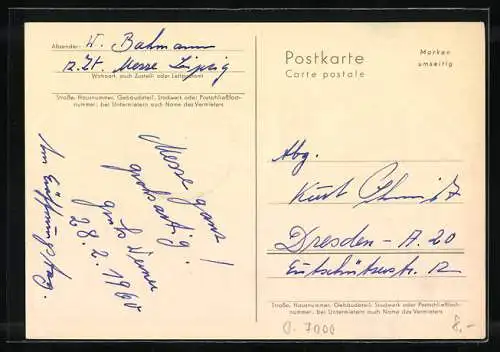 Absender: W. Bahmann
z. Zt. Messe Leipzig
Wohnort, auch Zustell- oder Leitpostamt
Straße, Hausnummer, Gebäudeteil, Stockwerk oder Postschließfach-
nummer; bei Untermietern auch Name des Vermieters
Messe ganz
großartig!
Gruß Werner
28.2.1960
Am Eröffnungstag.
Postkarte
Carte postale
Marken
umseitig
Abg.
Kurt Schmidt
Dresden - A. 20
Eutschützerstr. 12
Straße, Hausnummer, Gebäudeteil, Stockwerk oder Postschließfach-
nummer; bei Untermietern auch Name des Vermieters
D. 7000
8,-